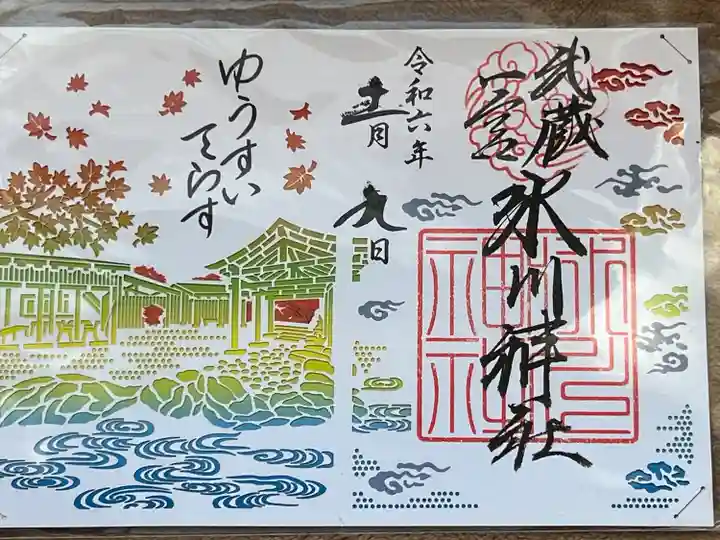 武蔵
一宮
氷川神社
令和六年
十一月
九日
ゆうすい
てらす
氷川神社